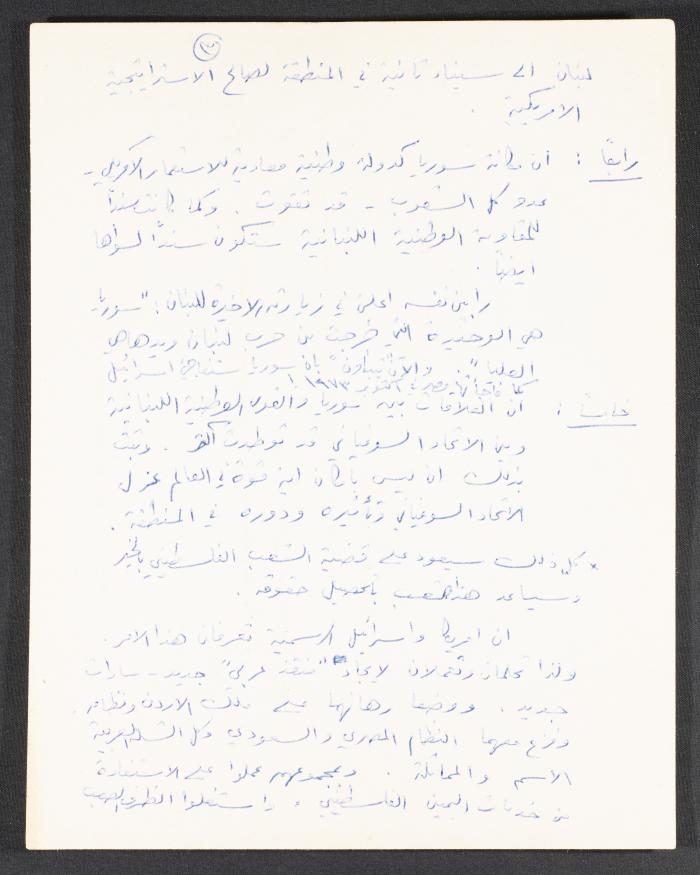 (٣)
لبنان الى سيناء ثانية في المنطقة لصالح الاستراتيجية
الامريكية .
رابعًا : ان مكانة سوريا كدولة وطنية معادية للاستعمار الامريكي -
عدو كل الشعوب - قد تقوت . وكما كانت سندًا
للمقاومة الوطنية اللبنانية ستكون سندًا لسواها
ايضًا .
رابين نفسه اعلن في زيارته الاخيرة للبنان : "سوريا
هي الوحيدة التي خرجت من حرب لبنان ويدها هي
العليا". والآن يتنبأون بان سوريا ستفاجئ اسرائيل
كما فاجأتها مصر في اكتوبر ١٩٧٣
خامسًا : ان العلاقات بين سوريا والقوى الوطنية اللبنانية
وبين الاتحاد السوفياتي قد توطدت اكثر . وثبت
بذلك ان ليس بامكان اية قوة في العالم عزل
الاتحاد السوفياتي وتأثيره ودوره في المنطقة .
* كل ذلك سيعود على قضية الشعب الفلسطيني بالخير
وسيساعد هذا الشعب بتحصيل حقوقه .
ان امريكا واسرائيل الرسمية تعرفان هذا الامر .
ولذا تحلمان وتعملان لايجاد "منقذ عربي" جديد - سادات
جديد . ووضعا رهانهما على ملك الاردن ونظامه
وفزع معهما النظام المصري والسعودي وكل الشلة العربية
الاسم والمماثلة . وبمجموعهم عملوا على الاستفادة
من خدمات اليمين الفلسطيني ، واستغلوا الظرف الصعب